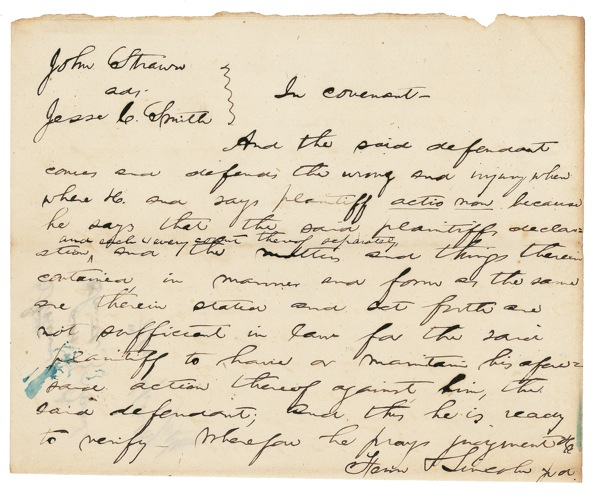 John Strawn
ads.
Jesse C. Smith
In covenant—
And the said defendant
comes and defends the wrong and injury when
where &c. and says plaintiff actio non because
he says that the said plaintiffs declar=
and each & every count thereof separately
ation, and the matters and things therein
contained, in manner and form as the same
are therein stated and set forth are
not sufficient in law for the said
plaintiff to have or maintain his afore=
said action thereof against him, the
said defendant; and this he is ready
to verify— Wherefore he prays judgment &c
& Lincoln p.d.